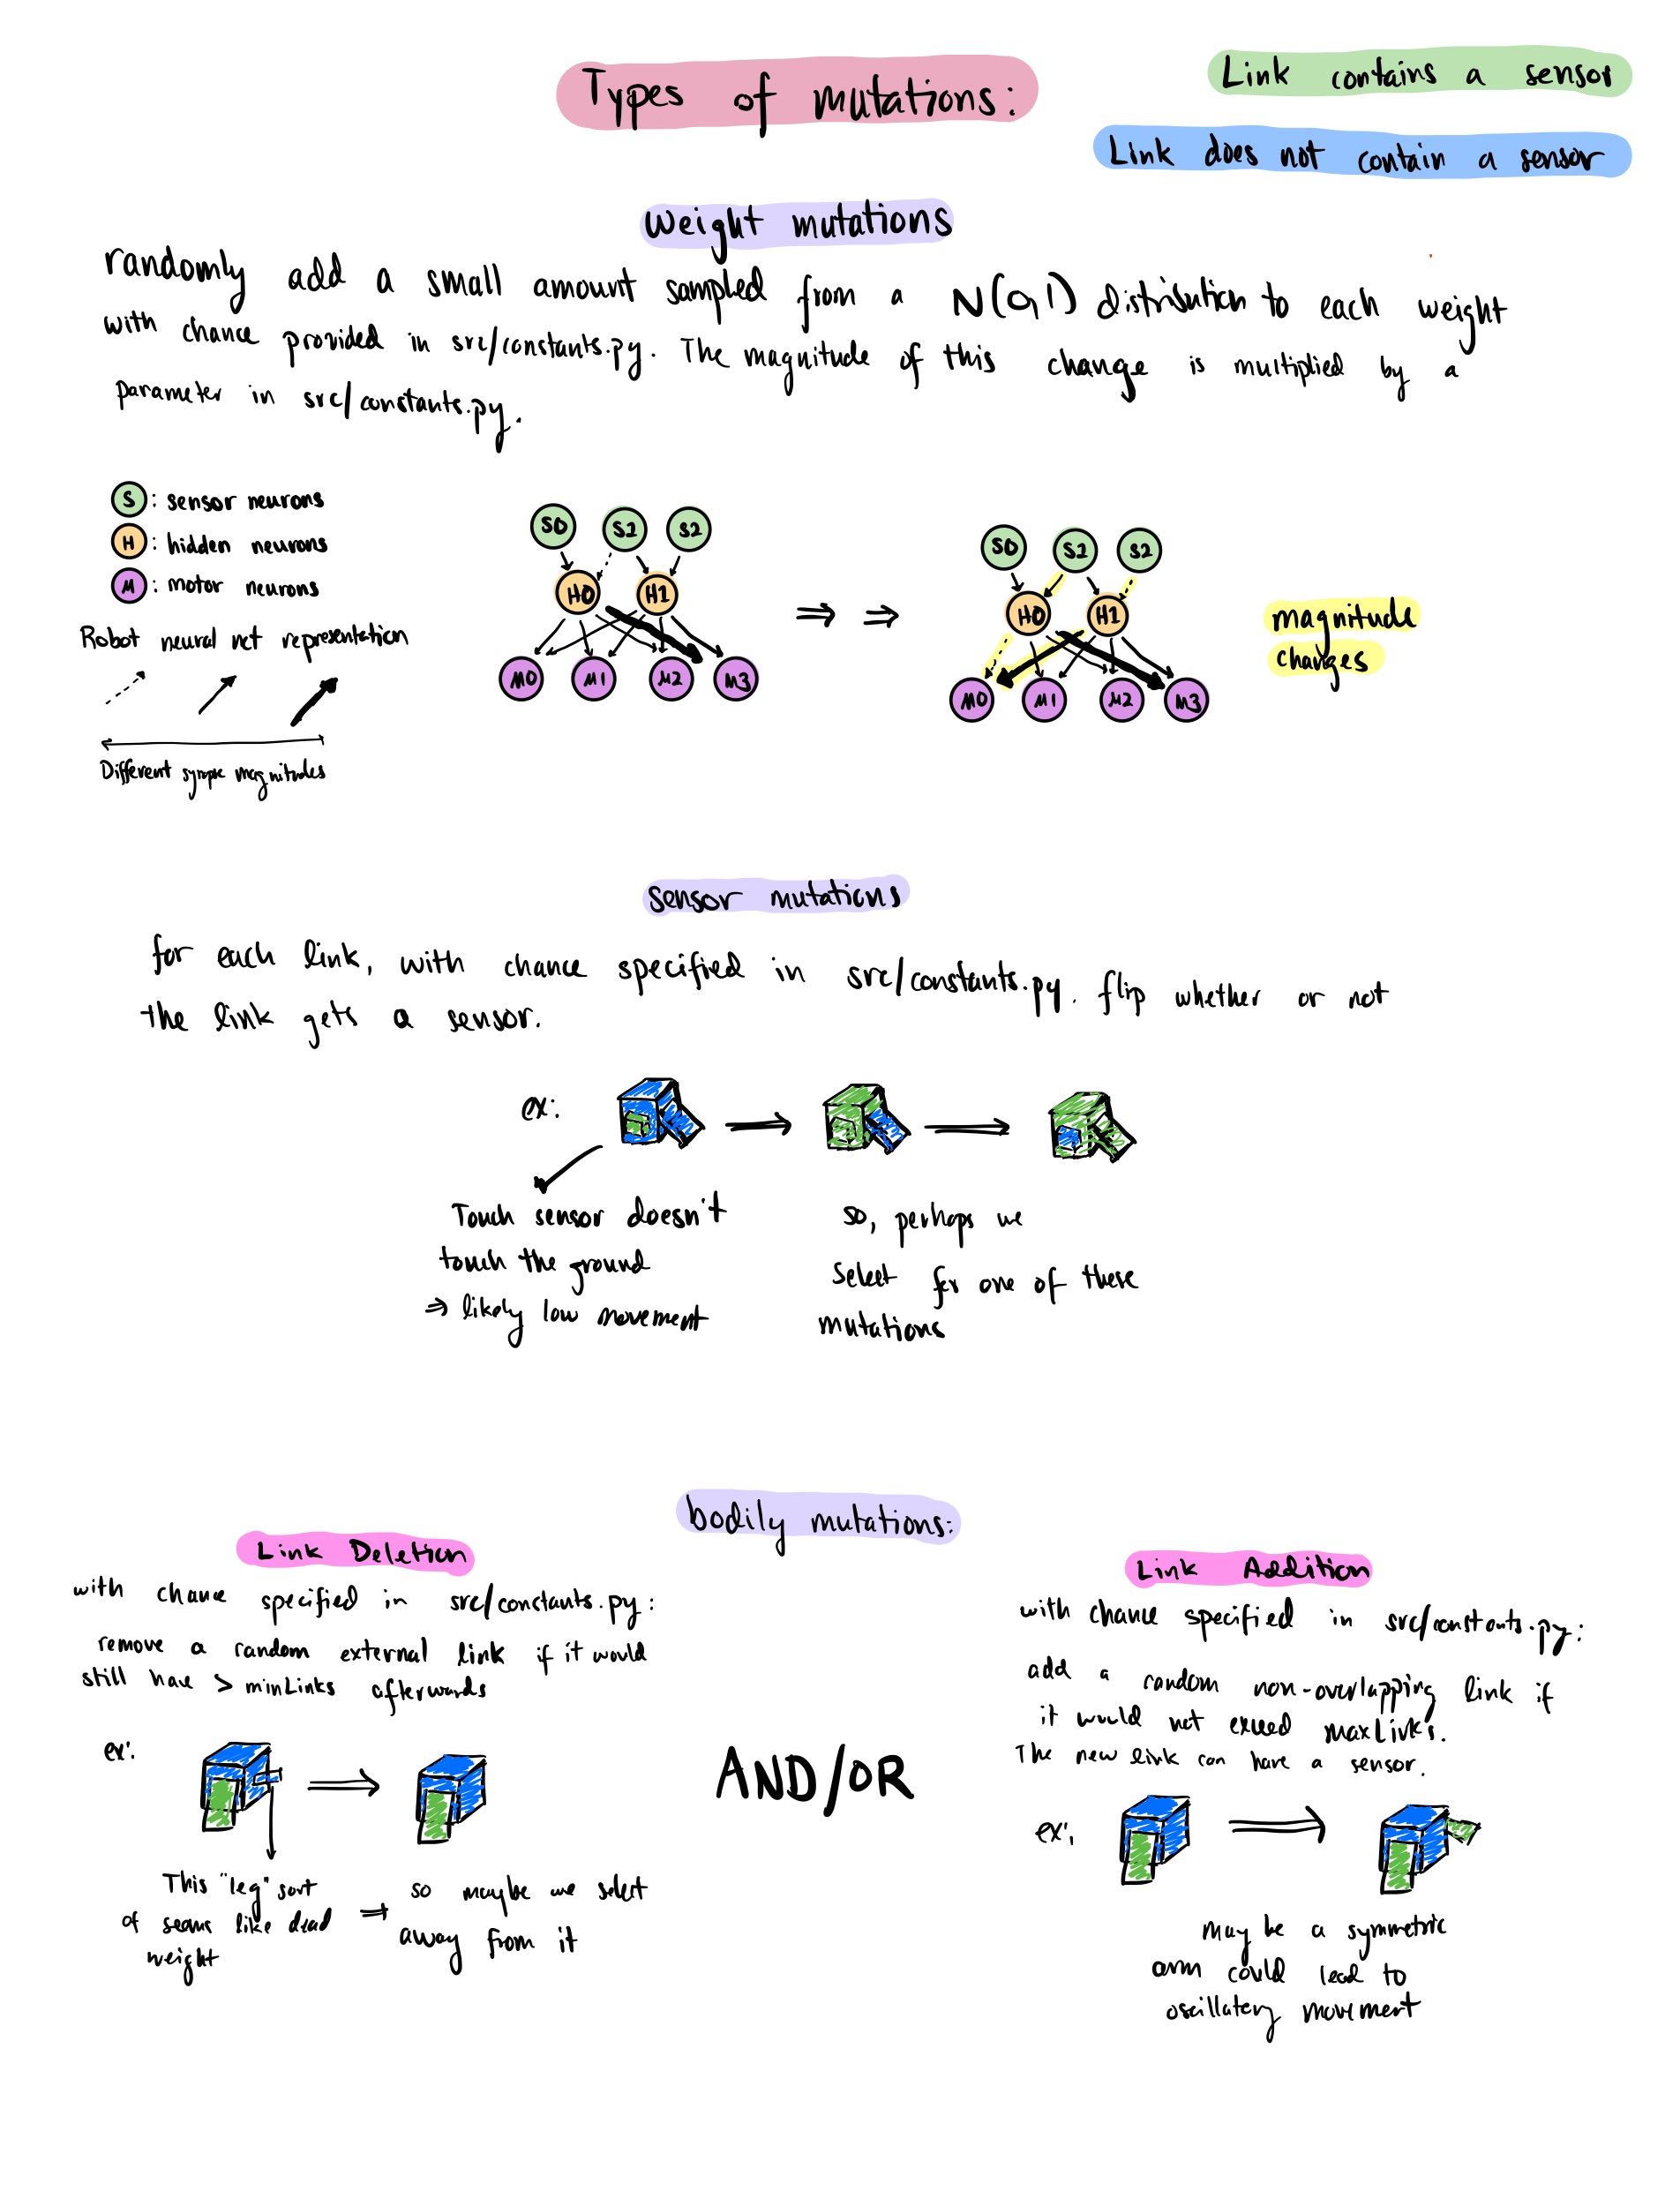 Types of mutations:
Link contains a sensor
Link does not contain a sensor
weight mutations
randomly add a small amount sampled from a N(0,1) distribution to each weight
with chance provided in src/constants.py. The magnitude of this change is multiplied by a
parameter in src/constants.py.
S : sensor neurons
H : hidden neurons
M : motor neurons
Robot neural net representation
Different synapse magnitudes
S0 S1 S2
H0 H1
M0 M1 M2 M3
S0 S1 S2
H0 H1
M0 M1 M2 M3
magnitude
changes
sensor mutations
for each link, with chance specified in src/constants.py, flip whether or not
the link gets a sensor.
ex:
Touch sensor doesn't
touch the ground
⇒ likely low movement
so, perhaps we
select for one of these
mutations
bodily mutations:
Link Deletion
with chance specified in src/constants.py:
remove a random external link if it would
still have > minLinks afterwards
ex:
This "leg" sort
of seems like dead
weight
⇒ so maybe we select
away from it
AND/OR
Link Addition
with chance specified in src/constants.py:
add a random non-overlapping link if
it would not exceed maxLinks.
The new link can have a sensor.
ex:
may be a symmetric
arm could lead to
oscillatory movement